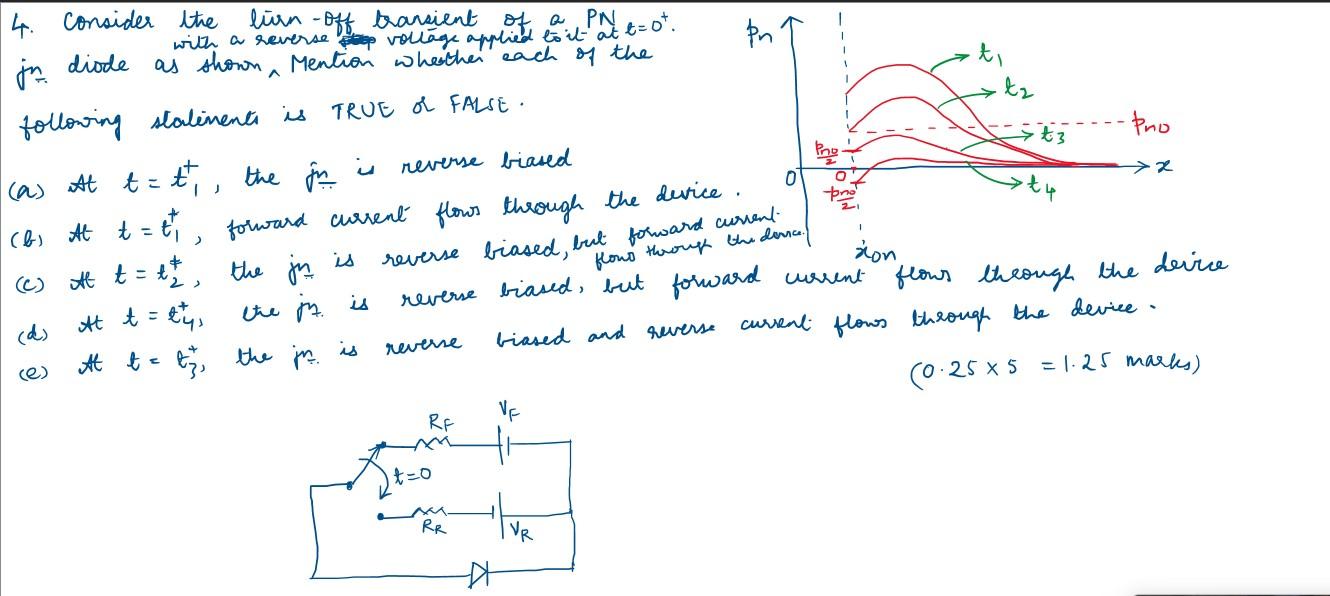 4. Consider the turn-off transient of a PN
with a reverse voltage applied to it at t=0⁺.
jn diode as shown ^ Mention whether each of the
following statements is TRUE or FALSE.
(a) At t = t₁⁺, the jn is reverse biased
(b) At t = t₁⁺, forward current flows through the device.
(c) At t = t₂⁺, the jn is reverse biased, but forward current
flows through the device.
(d) At t = t₄⁺, the jn is reverse biased, but forward current flows through the device
(e) At t = t₃⁺, the jn is reverse biased and reverse current flows through the device.
(0.25 x 5 = 1.25 marks)
pn
t₁
t₂
pno
pno/2
t₃
0
0
x
-pno/2
t₄
xon
RF
VF
t=0
RR
VR